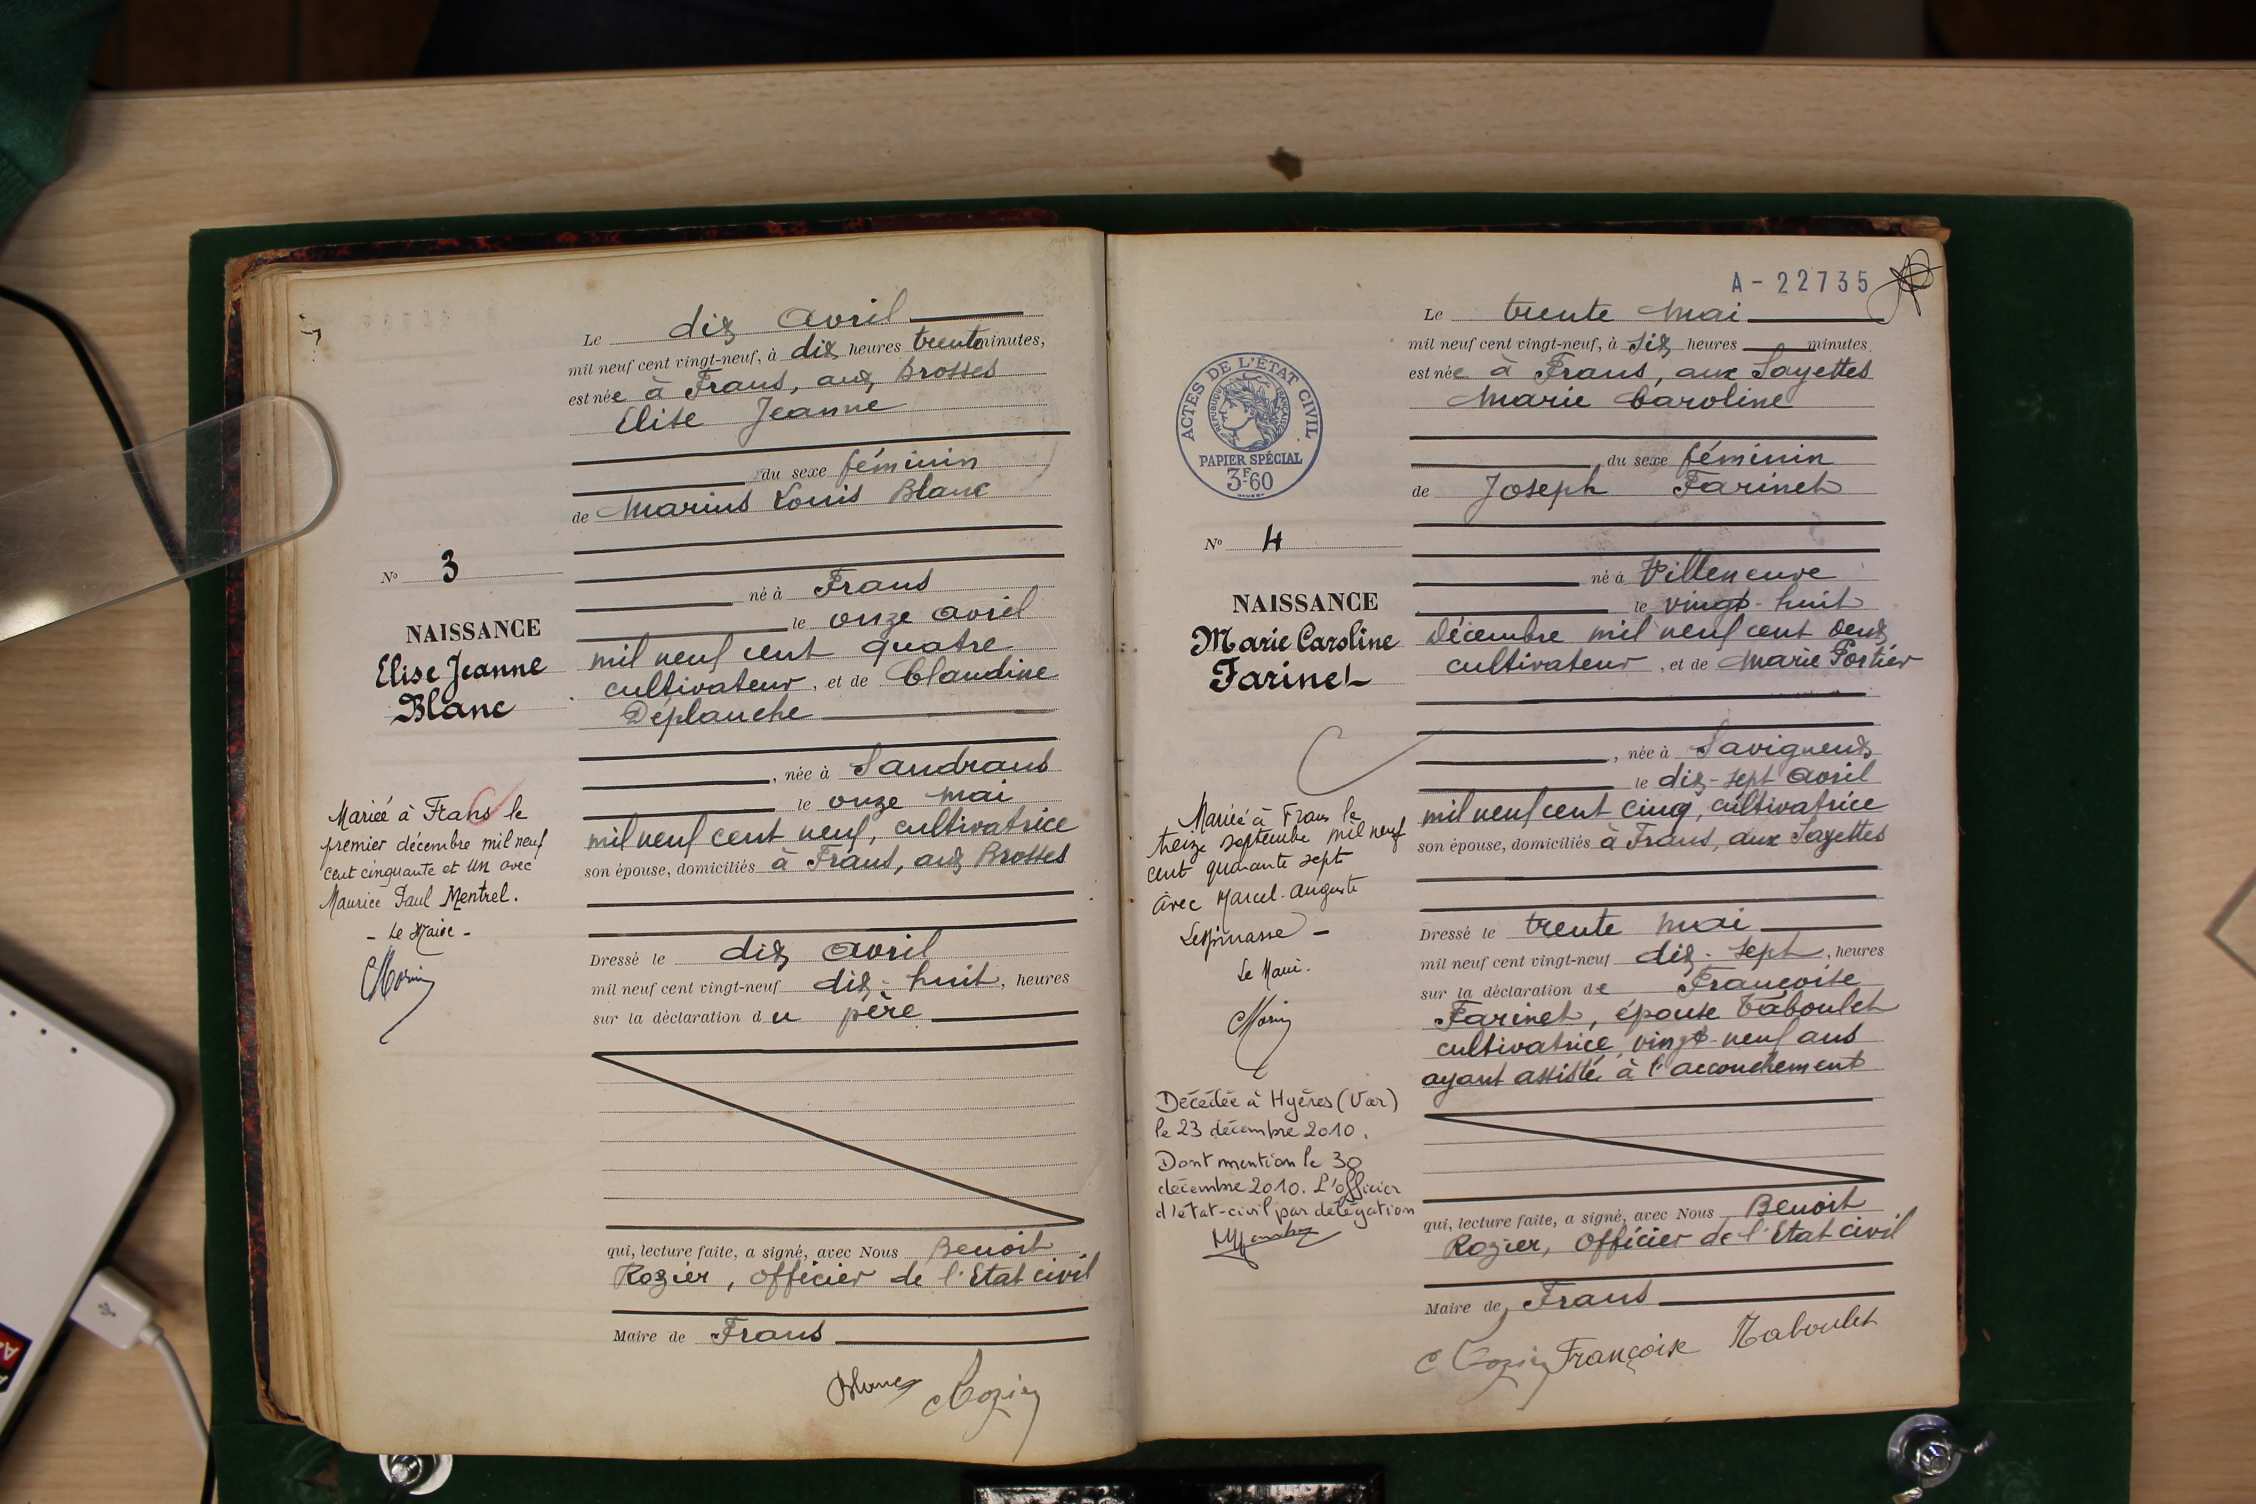 Le dix Avril
mil neuf cent vingt-neuf, à dix heures trente minutes,
est née à Frans, aux Brosses
Elise Jeanne
du sexe féminin
de Marius Louis Blanc
No 3
né à Frans
le onze avril
NAISSANCE
Elise Jeanne
Blanc
mil neuf cent quatre
cultivateur, et de Claudine
Déplanche
, née à Sandrans
le onze mai
mil neuf cent neuf, cultivatrice
son épouse, domiciliés à Frans, aux Brosses
Mariée à Frans le
premier décembre mil neuf
cent cinquante et un avec
Maurice Paul Mentrel.
- Le Maire -
Dressé le dix avril
mil neuf cent vingt-neuf dix-huit, heures
sur la déclaration du père
qui, lecture faite, a signé, avec Nous Benoit
Rozier, officier de l'Etat civil
Maire de Frans
Blanc Rozier
A-22735
Le trente Mai
mil neuf cent vingt-neuf, à six heures minutes
est née à Frans, aux Sayettes
Marie Caroline
du sexe féminin
de Joseph Farinet
ACTES DE L'ÉTAT CIVIL
RÉPUBLIQUE FRANÇAISE
PAPIER SPÉCIAL
3F60
No 4
NAISSANCE
Marie Caroline
Farinet
né à Villeneuve
le vingt-huit
décembre mil neuf cent deux
cultivateur, et de Marie Portier
, née à Savigneux
le dix-sept avril
mil neuf cent cinq, cultivatrice
son épouse, domiciliés à Frans, aux Sayettes
Mariée à Frans le
treize septembre mil neuf
cent quarante sept
avec Marcel-Auguste
Lespinasse -
Le Maire.
Dressé le trente mai
mil neuf cent vingt-neuf dix-sept, heures
sur la déclaration de Françoise
Farinet, épouse Taboulet
cultivatrice, vingt-neuf ans
ayant assisté à l'accouchement
Décédée à Hyères (Var)
le 23 décembre 2010.
Dont mention le 30
décembre 2010. L'officier
d'état-civil par délégation
qui, lecture faite, a signé, avec Nous Benoit
Rozier, officier de l'Etat civil
Maire de Frans
Rozier Françoise Taboulet